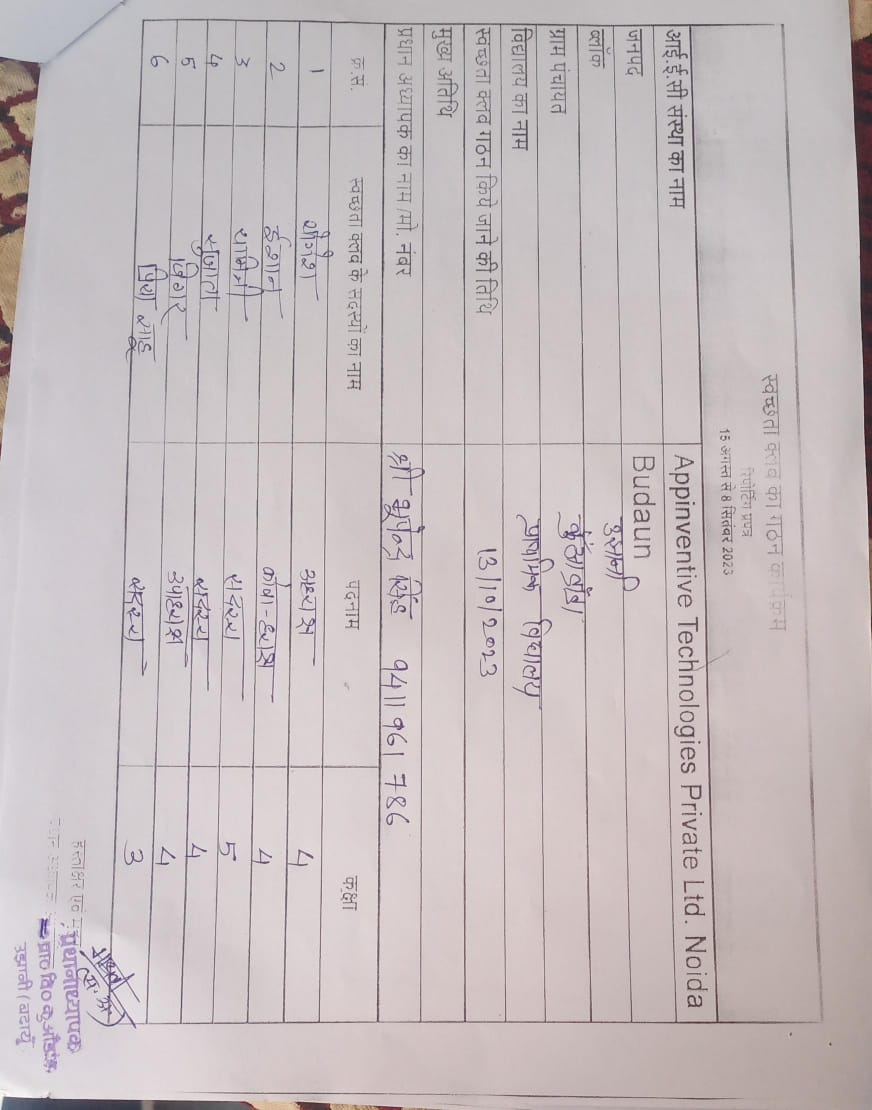 स्वच्छता क्लब का गठन कार्यक्रम
रिपोर्टिंग प्रपत्र
15 अगस्त से 8 सितंबर 2023
आई.ई.सी संस्था का नाम Appinventive Technologies Private Ltd. Noida
जनपद Budaun
ब्लॉक
ग्राम पंचायत
विद्यालय का नाम प्राथमिक विद्यालय
स्वच्छता क्लब गठन किये जाने की तिथि
मुख्य अतिथि
प्रधान अध्यापक का नाम /मो. नंबर श्री भूपेन्द्र सिंह 9411961786
क्र.सं. स्वच्छता क्लब के सदस्यों का नाम पदनाम कक्षा
1 योगेश अध्यक्ष 4
2 ईशान 4
3 सदस्य 5
4 सुजाता सदस्य 4
5 उपाध्यक्ष 4
6 सदस्य 3
हस्ताक्षर एवं
(प्र.अ)
प्रधानाध्यापक
प्रा० वि०
उझानी (बदायूँ